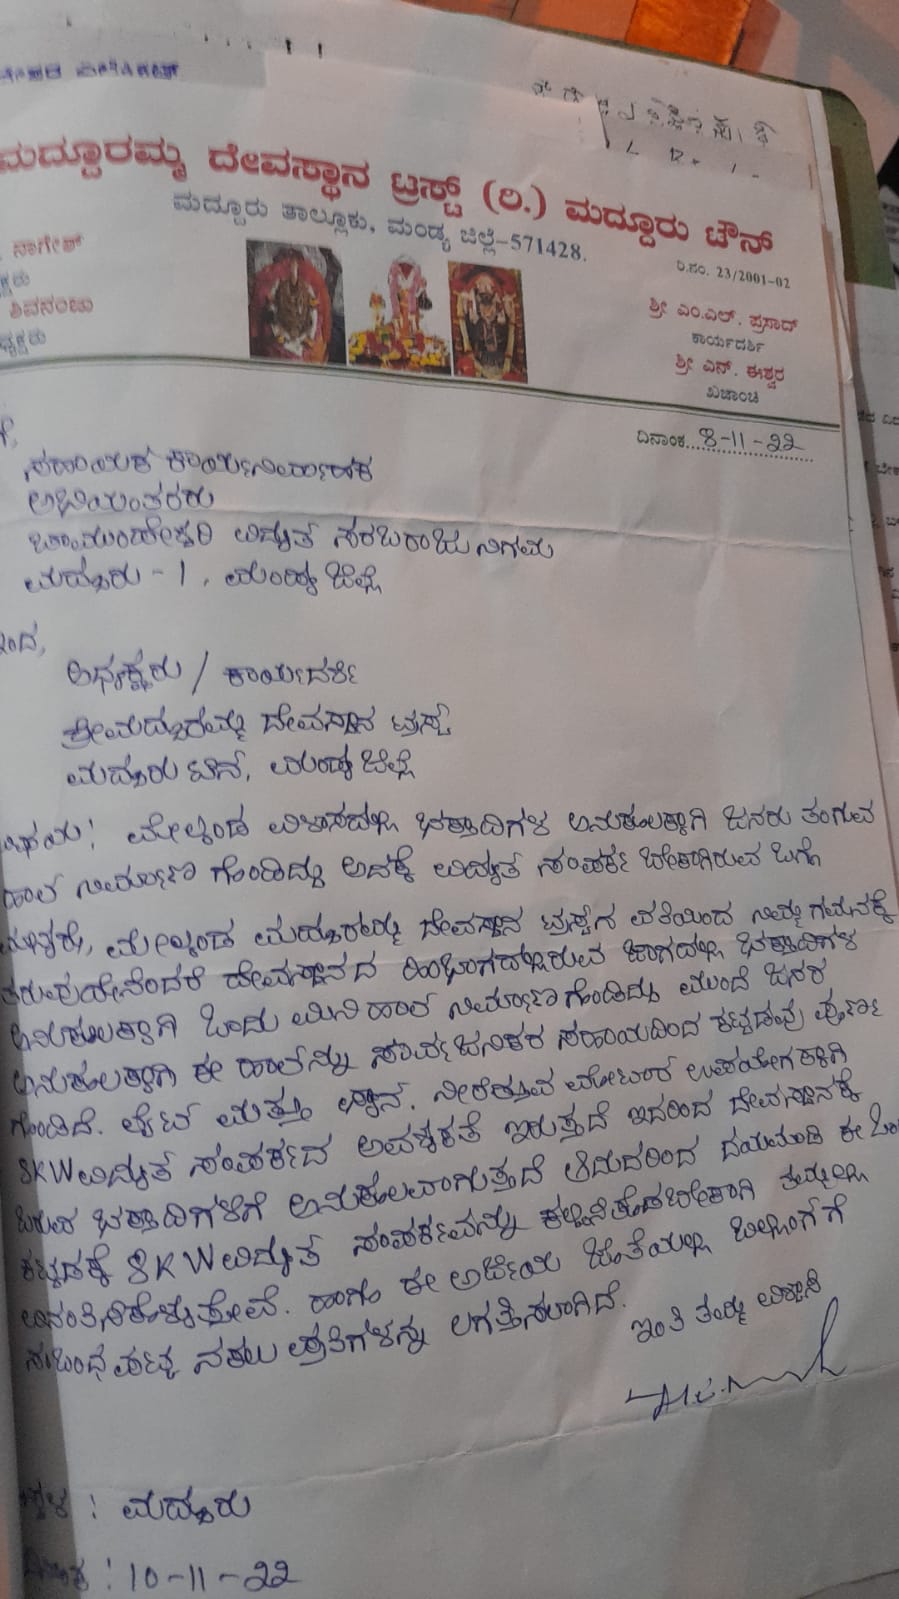 ಮದ್ದೂರಮ್ಮ ದೇವಸ್ಥಾನ ಟ್ರಸ್ಟ್ (ರಿ.) ಮದ್ದೂರು ಟೌನ್
ಮದ್ದೂರು ತಾಲ್ಲೂಕು, ಮಂಡ್ಯ ಜಿಲ್ಲೆ-571428.
ರಿ.ನಂ. 23/2001-02
ನಾಗೇಶ್
ಶಿವನಂಜು
ಶ್ರೀ ಎಂ.ಎಲ್. ಪ್ರಸಾದ್
ಕಾರ್ಯದರ್ಶಿ
ಶ್ರೀ ಎನ್. ಈಶ್ವರ
ಖಜಾಂಚಿ
ದಿನಾಂಕ...8-11-22
ಸಹಾಯಕ ಕಾರ್ಯನಿರ್ವಾಹಕ
ಅಭಿಯಂತರರು
ಚಾಮುಂಡೇಶ್ವರಿ ವಿದ್ಯುತ್ ಸರಬರಾಜು ನಿಗಮ
ಮದ್ದೂರು - 1, ಮಂಡ್ಯ ಜಿಲ್ಲೆ
ಇಂದ,
ಅಧ್ಯಕ್ಷರು / ಕಾರ್ಯದರ್ಶಿ
ಶ್ರೀಮದ್ದೂರಮ್ಮ ದೇವಸ್ಥಾನ ಟ್ರಸ್ಟ್
ಮದ್ದೂರು ಟೌನ್, ಮಂಡ್ಯ ಜಿಲ್ಲೆ
ವಿಷಯ: ಮೇಲ್ಕಂಡ ವಿಳಾಸದಲ್ಲಿ ಭಕ್ತಾದಿಗಳ ಅನುಕೂಲಕ್ಕಾಗಿ ಜನರು ತಂಗುವ
ಹಾಲ್ ನಿರ್ಮಾಣ ಗೊಂಡಿದ್ದು ಅದಕ್ಕೆ ವಿದ್ಯುತ್ ಸಂಪರ್ಕ ಬೇಕಾಗಿರುವ ಬಗ್ಗೆ
ಮಾನ್ಯರೇ, ಮೇಲ್ಕಂಡ ಮದ್ದೂರಮ್ಮ ದೇವಸ್ಥಾನ ಟ್ರಸ್ಟ್‌ನ ವತಿಯಿಂದ ನಿಮ್ಮ ಗಮನಕ್ಕೆ
ತರುವುದೇನೆಂದರೆ ದೇವಸ್ಥಾನದ ಹಿಂಭಾಗದಲ್ಲಿರುವ ಜಾಗದಲ್ಲಿ ಭಕ್ತಾದಿಗಳ
ಅನುಕೂಲಕ್ಕಾಗಿ ಒಂದು ಮಿನಿ ಹಾಲ್ ನಿರ್ಮಾಣಗೊಂಡಿದ್ದು ಮುಂದೆ ಜನರ
ಅನುಕೂಲಕ್ಕಾಗಿ ಈ ಹಾಲನ್ನು ಸಾರ್ವಜನಿಕರ ಸಹಾಯದಿಂದ ಕಟ್ಟಡವು ಪೂರ್ಣ
ಗೊಂಡಿದೆ. ಲೈಟ್ ಮತ್ತು ಫ್ಯಾನ್. ನೀರೆತ್ತುವ ಮೋಟಾರ್ ಉಪಯೋಗಕ್ಕಾಗಿ
8KW ವಿದ್ಯುತ್ ಸಂಪರ್ಕದ ಅವಶ್ಯಕತೆ ಇರುತ್ತದೆ ಇದರಿಂದ ದೇವಸ್ಥಾನಕ್ಕೆ
ಬರುವ ಭಕ್ತಾದಿಗಳಿಗೆ ಅನುಕೂಲವಾಗುತ್ತದೆ ಆದುದರಿಂದ ದಯಮಾಡಿ ಈ
ಕಟ್ಟಡಕ್ಕೆ 8KW ವಿದ್ಯುತ್ ಸಂಪರ್ಕವನ್ನು ತಮ್ಮಲ್ಲಿ
ಹಾಗೂ ಈ ಅರ್ಜಿಯ ಜೊತೆಯಲ್ಲಿ ಬಿಲ್ಡಿಂಗ್‌ಗೆ
ಸಂಬಂಧಪಟ್ಟ ನಕಲು ಪ್ರತಿಗಳನ್ನು ಲಗತ್ತಿಸಲಾಗಿದೆ.
ಇಂತಿ ತಮ್ಮ ವಿಶ್ವಾಸಿ
ಸ್ಥಳ : ಮದ್ದೂರು
ದಿನಾಂಕ : 10-11-22